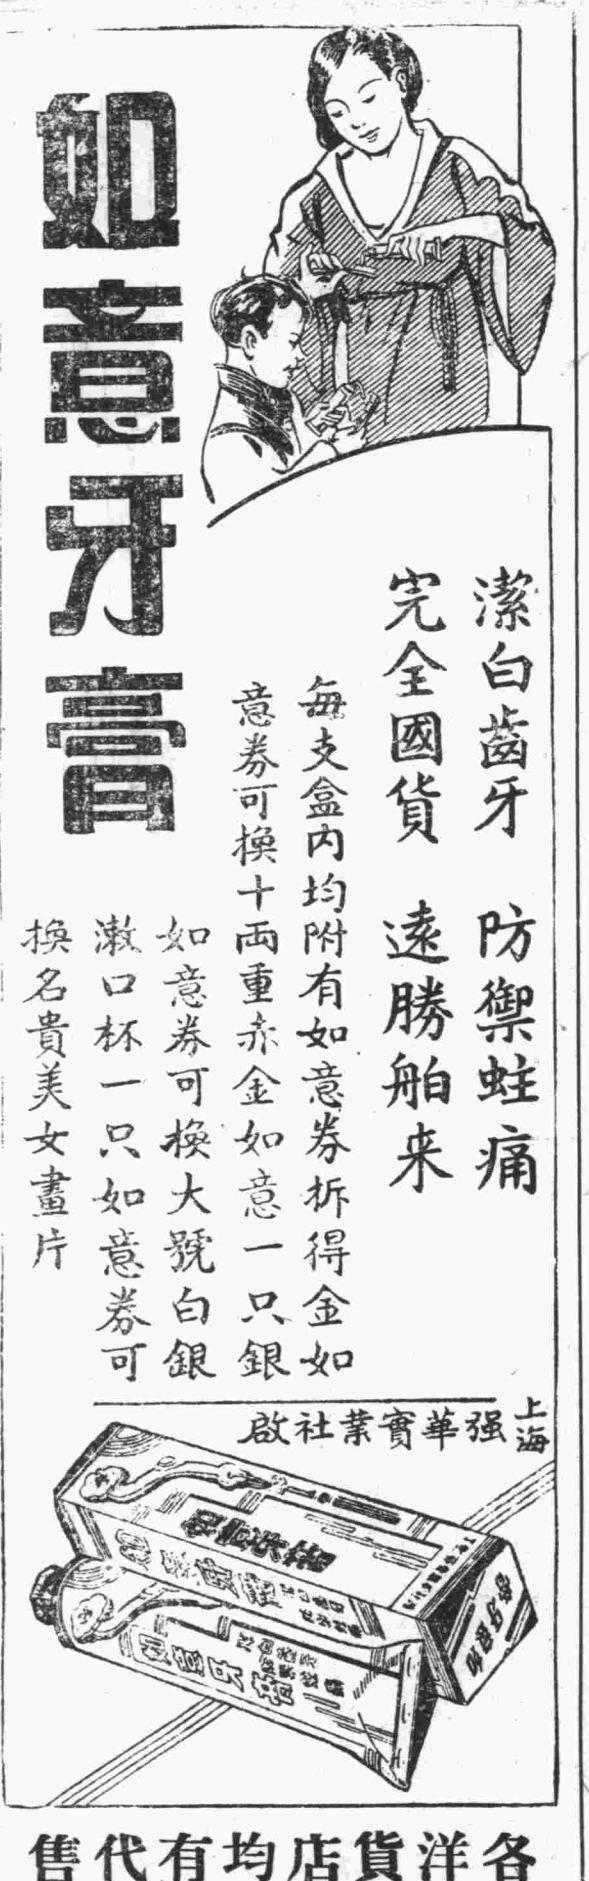 如意牙膏
潔白齒牙　防禦蛀痛
完全國貨　遠勝舶来
每支盒内均附有如意券拆得金如
意券可換十両重赤金如意一只銀
如意券可換大號白銀
漱口杯一只如意券可
換名貴美女畫片
上海强華實業社啟
如意牙膏
如意牙膏
如意牙膏
各洋貨店均有代售